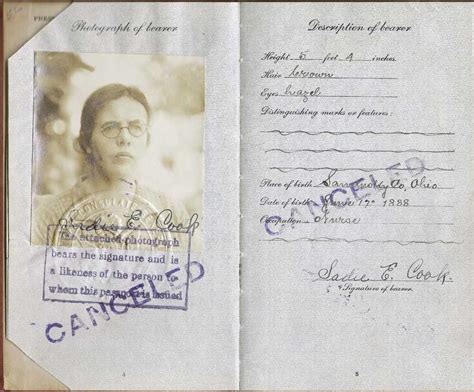 Photograph of bearer
Sadie E. Cook
The attached photograph
bears the signature and is
a likeness of the person to
whom this passport is issued
CANCELED
4
Description of bearer
Height 5 feet 4 inches
Hair brown
Eyes hazel
Distinguishing marks or features:
Place of birth Co, Ohio
Date of birth June 17 1888
Occupation Nurse
CANCELED
Sadie E. Cook
Signature of bearer.